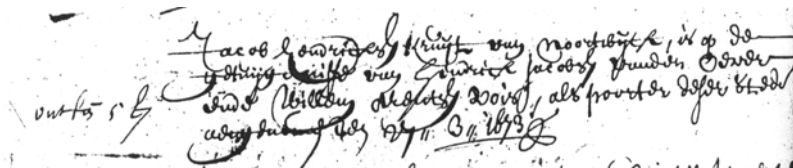 Jacob Hendricksz Kruijt van Noortwijck, is op de
getuijgenisse van Hendrick Jacobsz van den Oever
ontfa 5 ende Willem Vois, als poorter deser stede
aengenomen den 3 1673